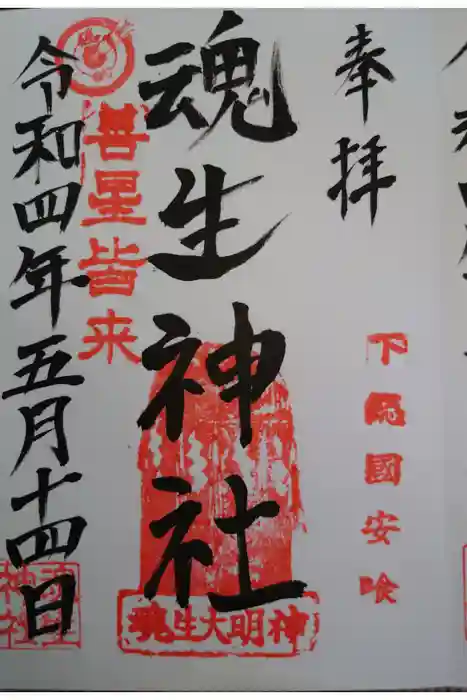 奉拝
下総國安食
魂生神社
魂生大明神
善星皆来
令和四年五月十四日